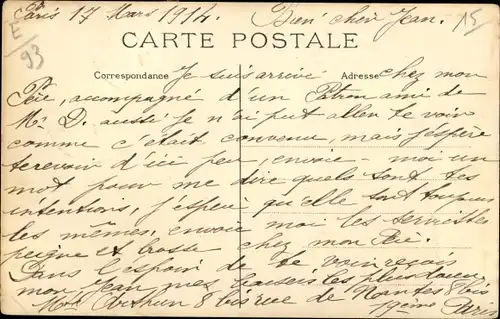 Paris 17 Mars 1914. Bien cher Jean.
15
E/93
CARTE POSTALE
Correspondance Je suis arrivé Adresse chez mon
Père, accompagné d'un Patron ami de
Mr D. aussi je n'ai put allen te voir
comme c'etait convenu, mais j'espère
te revoir d'ici peu, envoie-moi un
mot pour me dire quels sont tes
intentions, j'espère qu'elle sont toujours
les mêmes. envoie moi les serviettes
peigne et brosse chez mon Père.
Dans l'espoir de te voir reçois
mon Jean mes baisers les plus doux
8 bis rue de Nantes 8 bis
19ème Paris